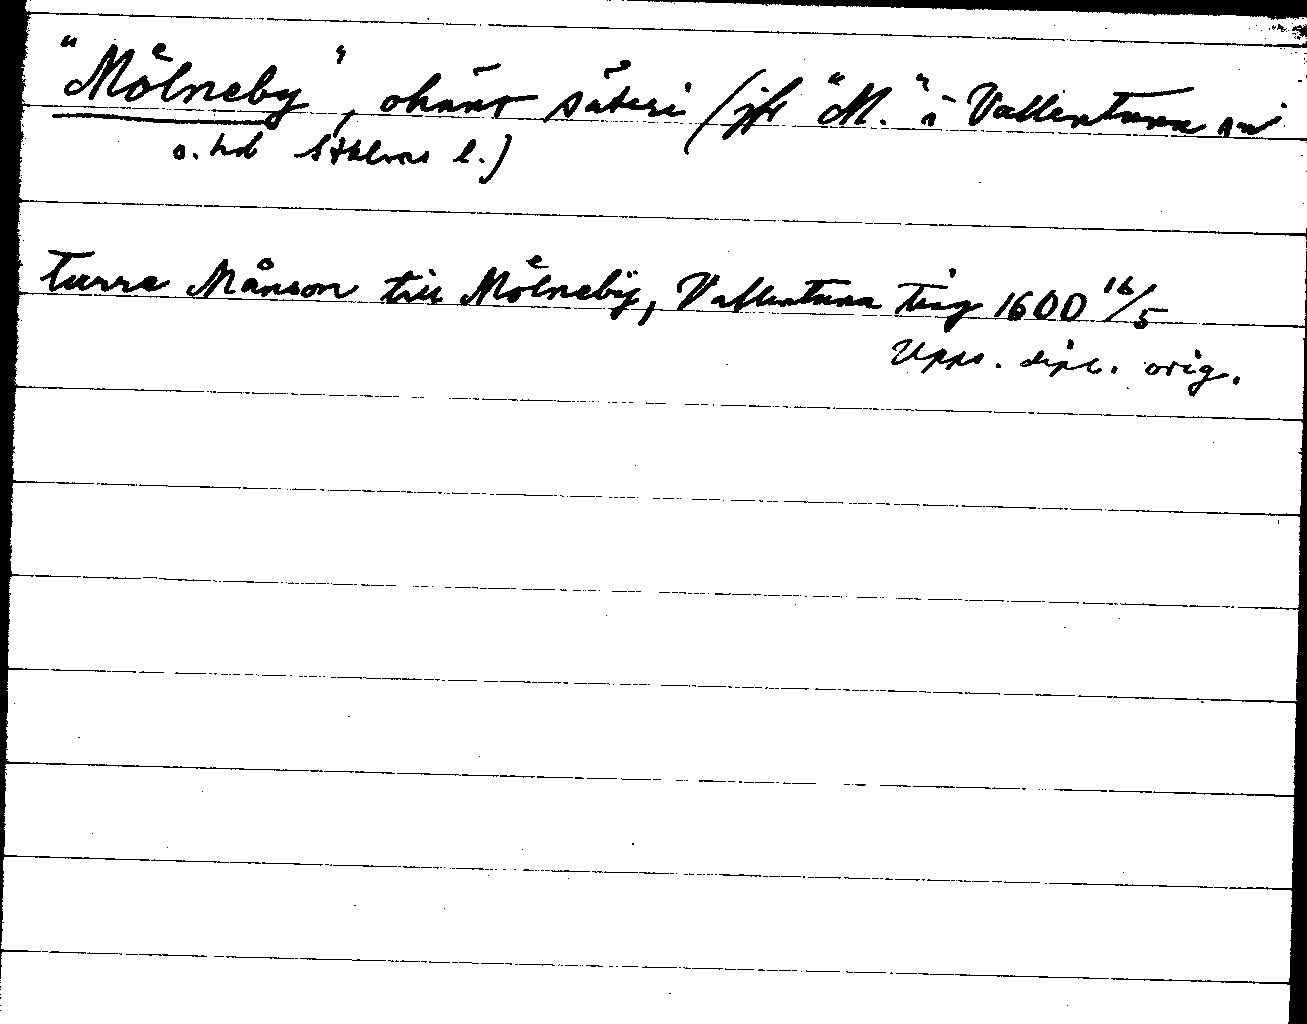 "Mölneby", okänt säteri (jfr "M." i Vallentuna sn
o. hd Sthlms l.)
turre Månson till Mölnebÿ, Vallentuna ting 1600 16/5
Upps. dipl. orig.